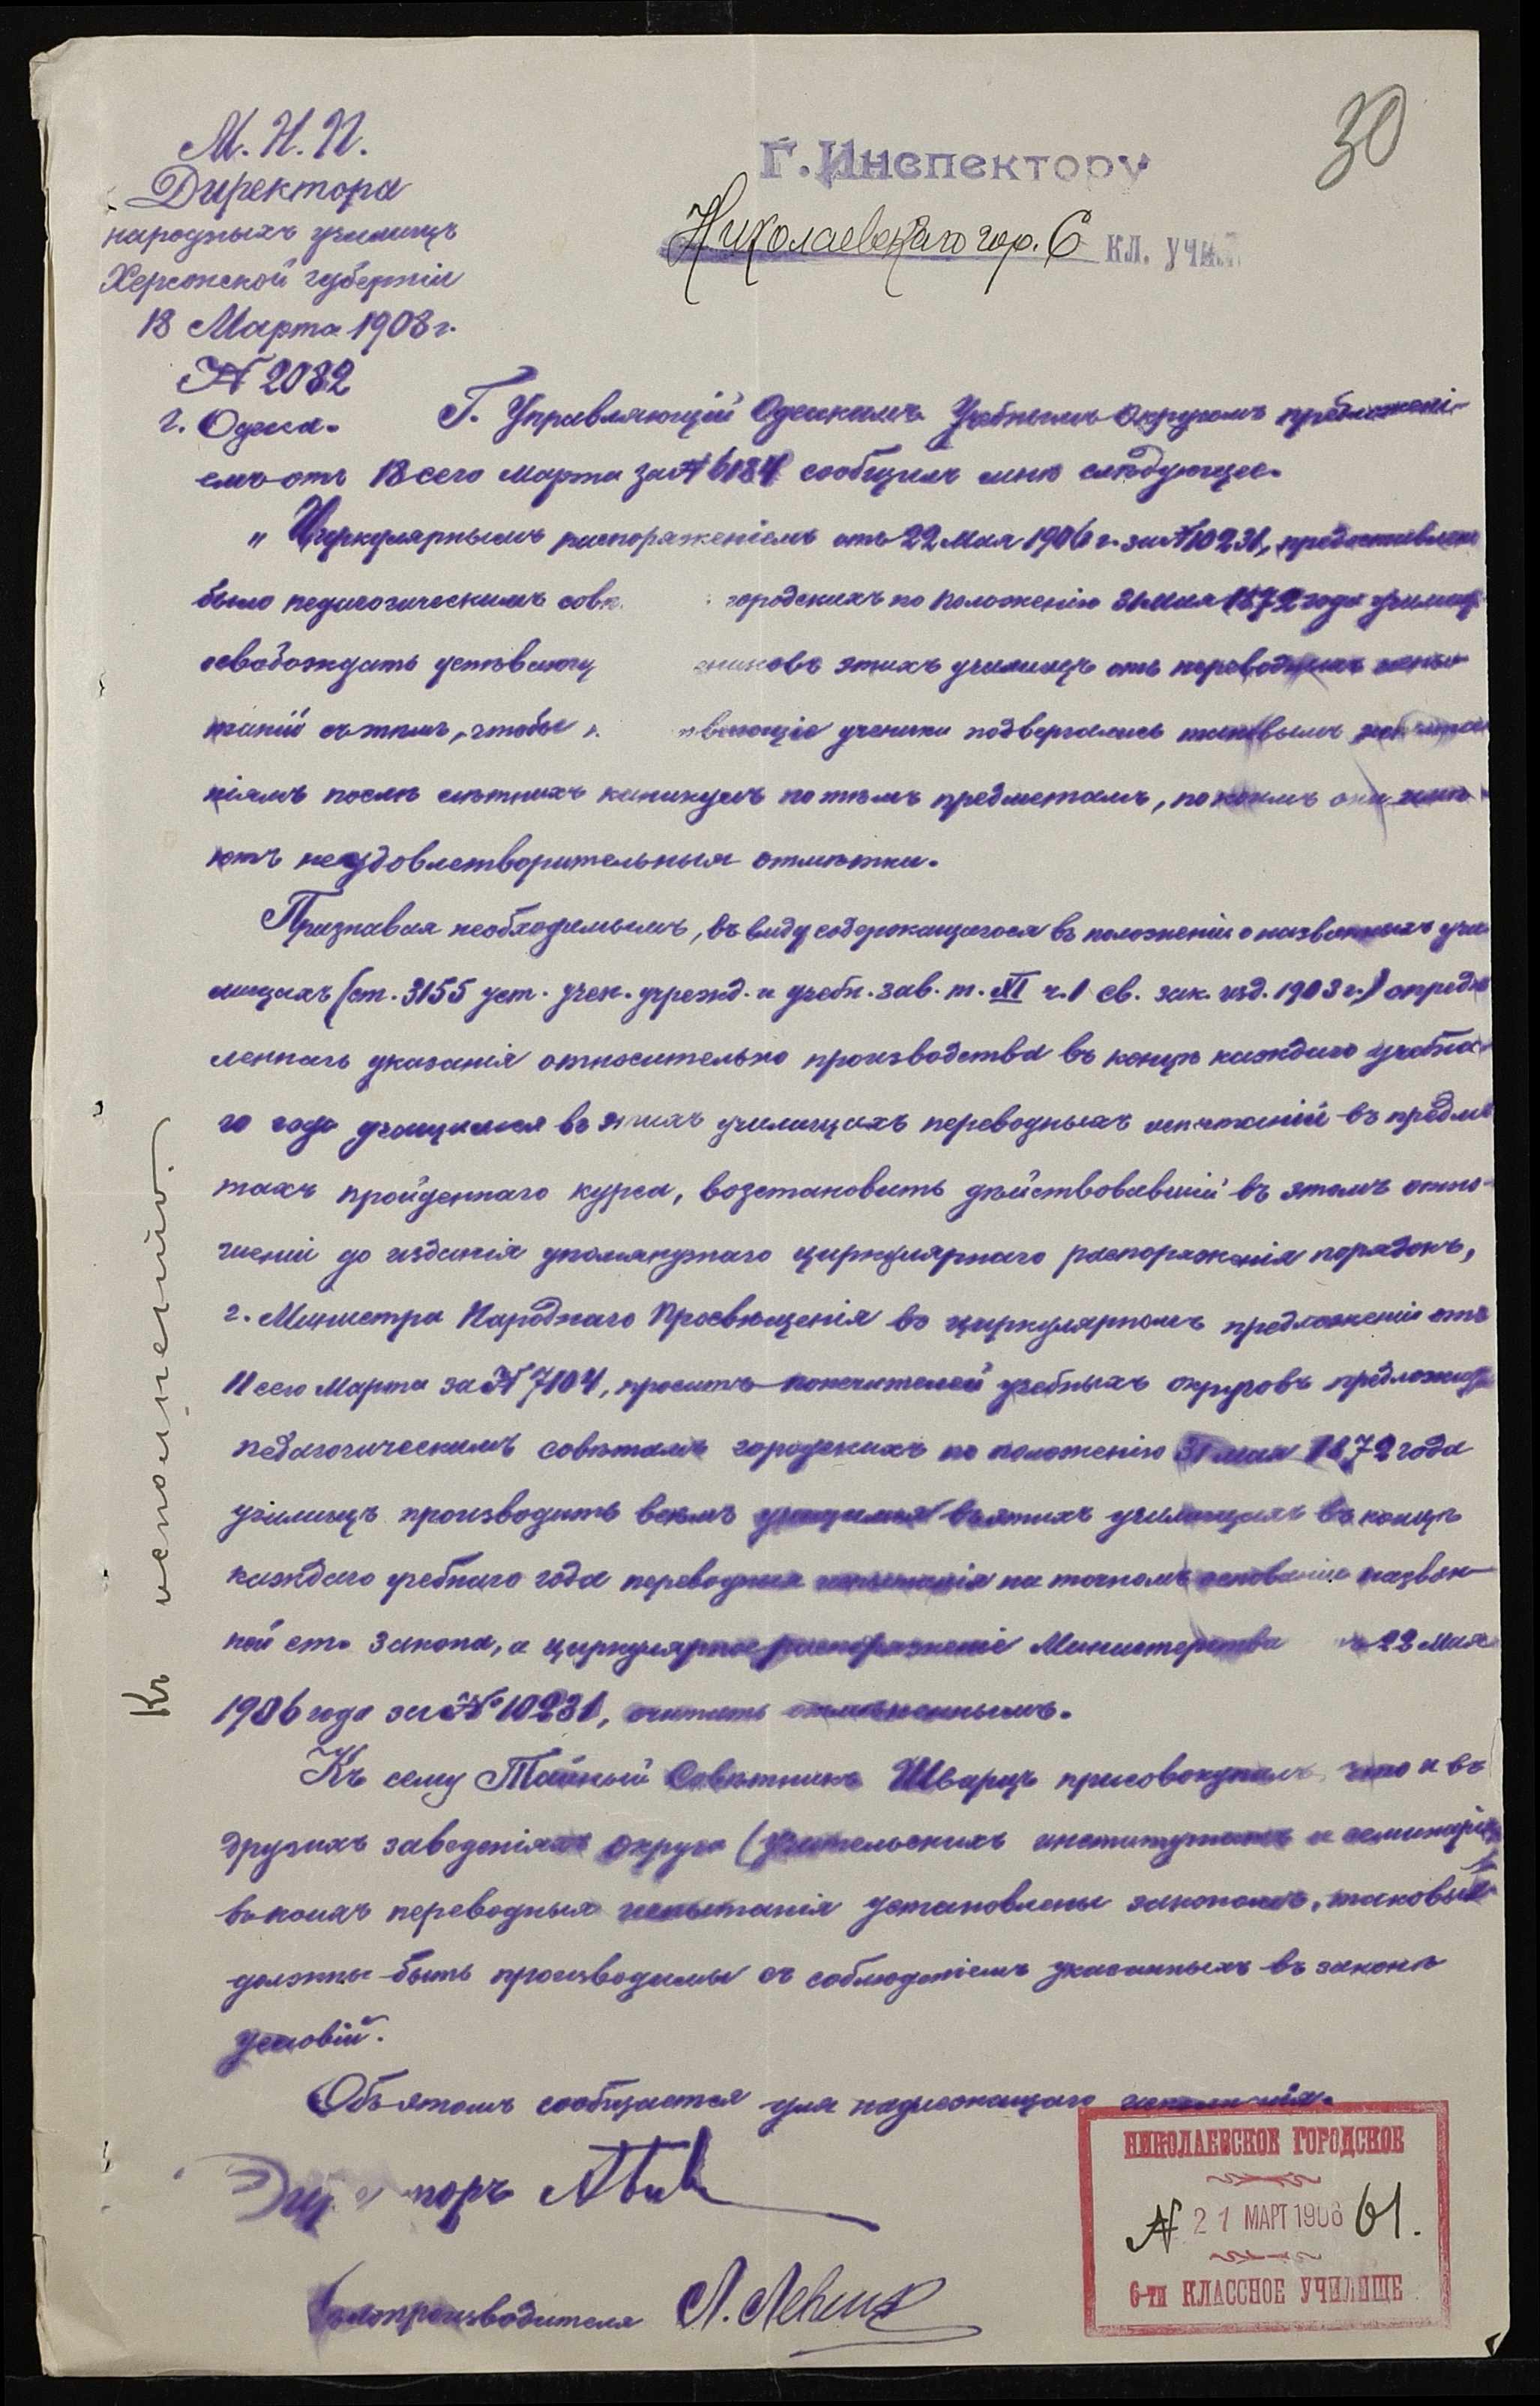 30
М. Н. П.
Директора
народныхъ училищъ
Херсонской губерніи
18 Марта 1908 г.
№ 2082
г. Одесса.
Г. Инспектору
Николаевскаго гор. 6 кл. учил.
Г. Управляющій Одесскимъ Учебнымъ Округомъ предложені-
емъ отъ 18 сего Марта за № 6184 сообщилъ мнѣ слѣдующее.
„Циркулярнымъ распоряженіемъ отъ 22 Мая 1906 г. за № 10231, предоставлено
было педагогическимъ сов городскихъ по положенію 31 мая 1872 года училищ
освобождать успѣвающ никовъ этихъ училищъ отъ переводныхъ испы-
таній съ тѣмъ, чтобы н вающіе ученики подвергались таковымъ испыта
ніямъ послѣ лѣтнихъ каникулъ по тѣмъ предметамъ, по коимъ они имѣ
ютъ неудовлетворительныя отмѣтки.
Признавая необходимымъ, въ виду содержащагося въ положеніи о названныхъ учи-
лищахъ (ст. 3155 уст. учен. учрежд. и учебн. зав. т. XI ч. 1 св. зак. изд. 1903 г.) опредѣ
леннаго указанія относительно производства въ концѣ каждаго учебна-
го года учащимся въ этихъ училищахъ переводныхъ испытаній въ предме
тахъ пройденнаго курса, возстановить дѣйствовавшій въ этомъ отно-
шеніи до изданія упомянутаго циркулярнаго распоряженія порядокъ,
г. Министра Народнаго Просвѣщенія въ циркулярномъ предложеніи отъ
11 сего Марта за № 7104, проситъ попечителей учебныхъ округовъ предложить
педагогическимъ совѣтамъ городскихъ по положенію 31 мая 1872 года
училищъ производить всѣмъ учащимся въ этихъ училищахъ въ концѣ
каждаго учебнаго года переводныя испытанія на точномъ основаніи назван-
ной ст. закона, а циркулярное распоряженіе Министерства ъ 22 Мая
1906 года за № 10231, считать отмѣненнымъ.
Къ сему Тайный Совѣтникъ Шварцъ присовокупилъ, что и въ
другихъ заведеніяхъ округа (учительскихъ институтахъ и семинаріяхъ
въ коихъ переводныя испытанія установлены закономъ, таковыя
должны быть производимы съ соблюденіемъ указанныхъ въ законѣ
условій.
Объ этомъ сообщается для надлежащаго исполненія.
Ди торъ
Дѣлопроизводителя Л. Левиц
Къ исполненію.
НИКОЛАЕВСКОЕ ГОРОДСКОЕ
№ 21 МАРТ 1908 61.
6-ти КЛАССНОЕ УЧИЛИЩЕ